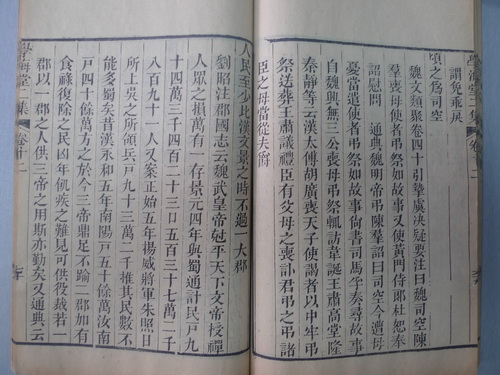 學海堂二集 卷十二
謂免乘戾
頃之為司空
魏文類聚卷四十引摯虞決疑要注曰魏司空陳
羣喪母使者弔祭如故事又使黃門侍郎杜恕奉
詔慰問 通典魏明帝陳羣詔曰司空今遭母
憂當遣使者弔祭如故事尚書司馬孚奏尋故事
自魏興無三公喪母弔祭輒訪韋誕王肅高堂隆
秦靜等云漢太傅胡廣喪天子使謁者以中牢弔
祭送葬王肅議禮臣有父母之喪訃君弔之弔諸
臣之母當從夫爵
人民至少比漢文景之時不過一大郡
劉昭注郡國志云魏武皇帝尅平天下文帝授禪
人眾之損萬有一存景元四年與蜀通計民戶九
十四萬三千四百二十三口五百三十七萬二千
八百九十一人又案正始五年揚威將軍朱照日
所上吳之所領兵戶九十三萬二千推其民數不
能多蜀矣昔漢永和五年南陽戶五十餘萬汝南
戶四十餘萬方之於今三帝鼎足不踰二郡加有
食祿復除之民凶年飢疾之難見可供役裁若一
郡以一郡之人供三帝之用斯亦勤矣又通典云
學海堂二集 卷十二